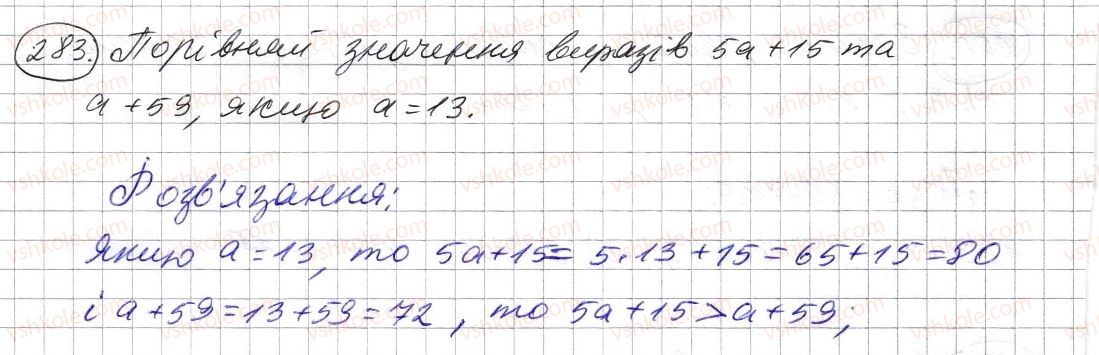 283. Порівняй значення виразів 5a+15 та
a+59, якщо a=13.
Розв'язання:
Якщо a=13, то 5a+15=5·13+15=65+15=80
і a+59=13+59=72, то 5a+15>a+59;